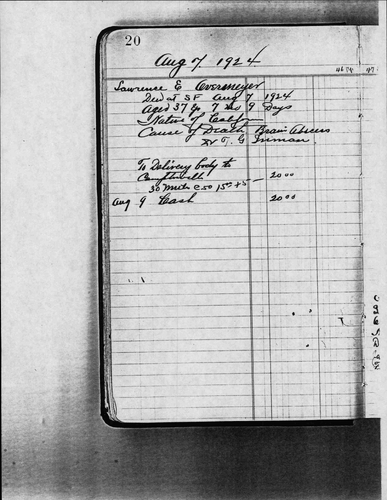 20
Aug 7. 1924
Lawrence E Oversmeyer
Died at S F Aug 7 1924
Aged 37 ys 7 mo 9 Days
Native of Calif
Cause of Death Brain Abscess
Dr T. G Inman
To Delivery body to
Camptonville
30 Miles @ 50 15 00 + 5 — 20 00
Aug 9 Cash 20 00